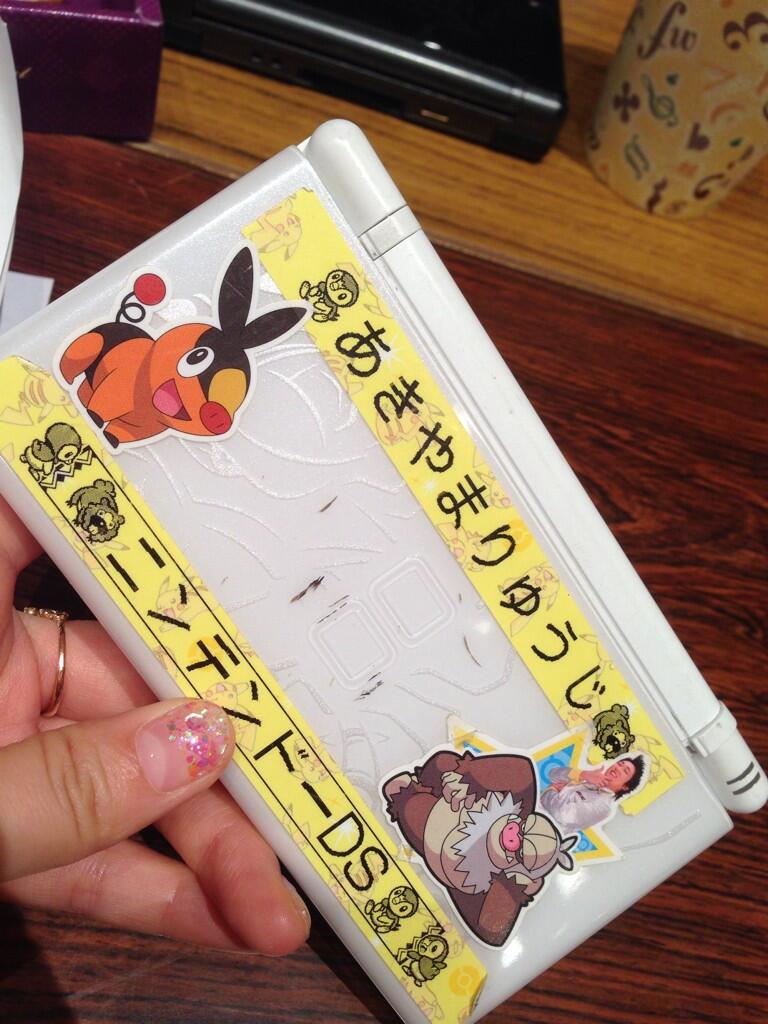 あきやまりゅうじ
ニンテンドーDS
fw